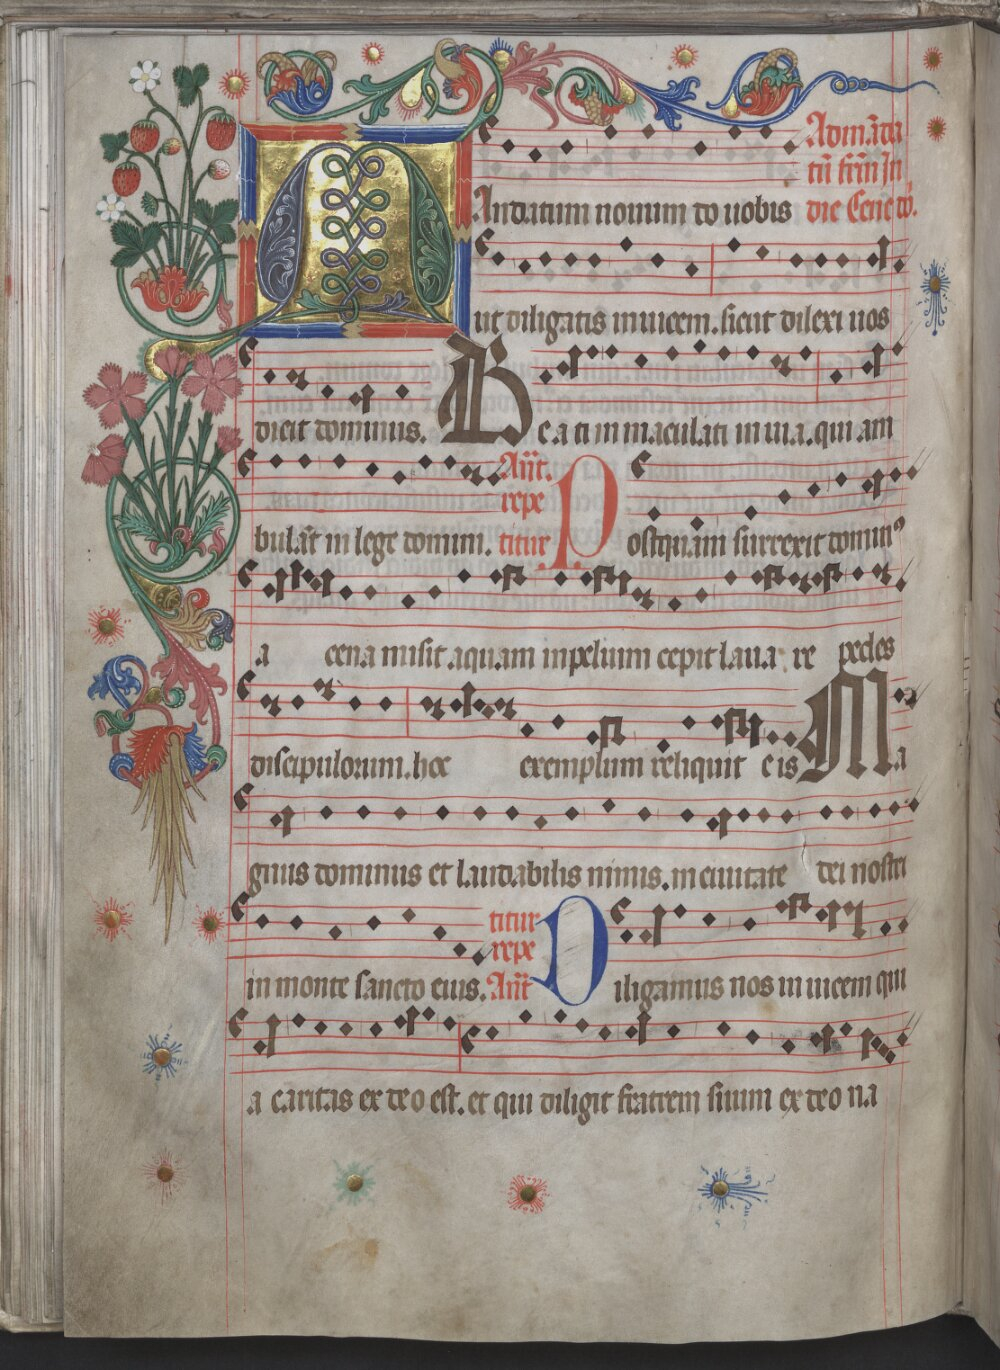 Ad mãda
tũ frm̃ In
Andatum nouum do uobis die Cene dõ.
ut diligatis inuicem. sicut dilexi uos
dicit dominus. Be a ti in maculati in uia. qui am
Añt.
repe
bulãt in lege domini. titur Postquam surrexit domin⁹
a cena misit aquam in peluim cepit laua re pedes
discipulorum. hoc exemplum reliquit e is Ma
gnus dominus et laudabilis nimis. in ciuitate dei nostri
titur
repe
in monte sancto eius. Añt Diligamus nos in uicem qui
a caritas ex deo est. et qui diligit fratrem suum ex deo na